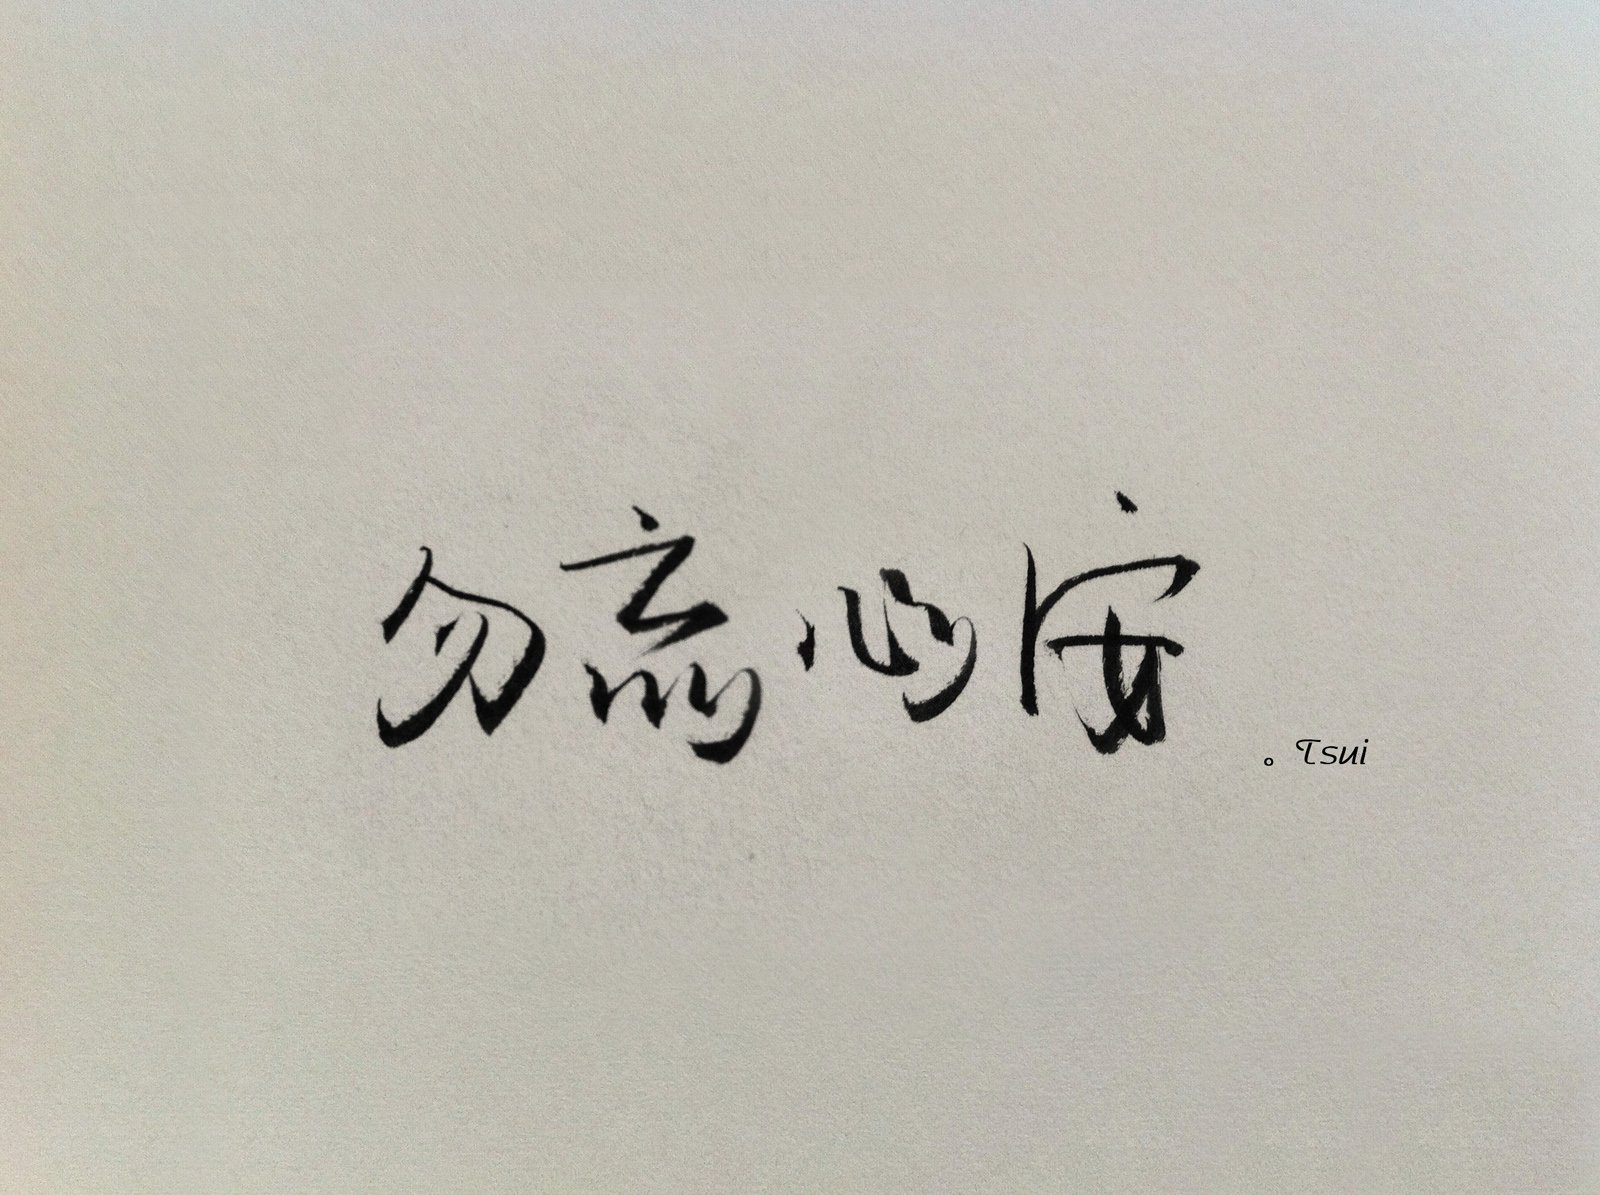 勿忘心安
。Tsui